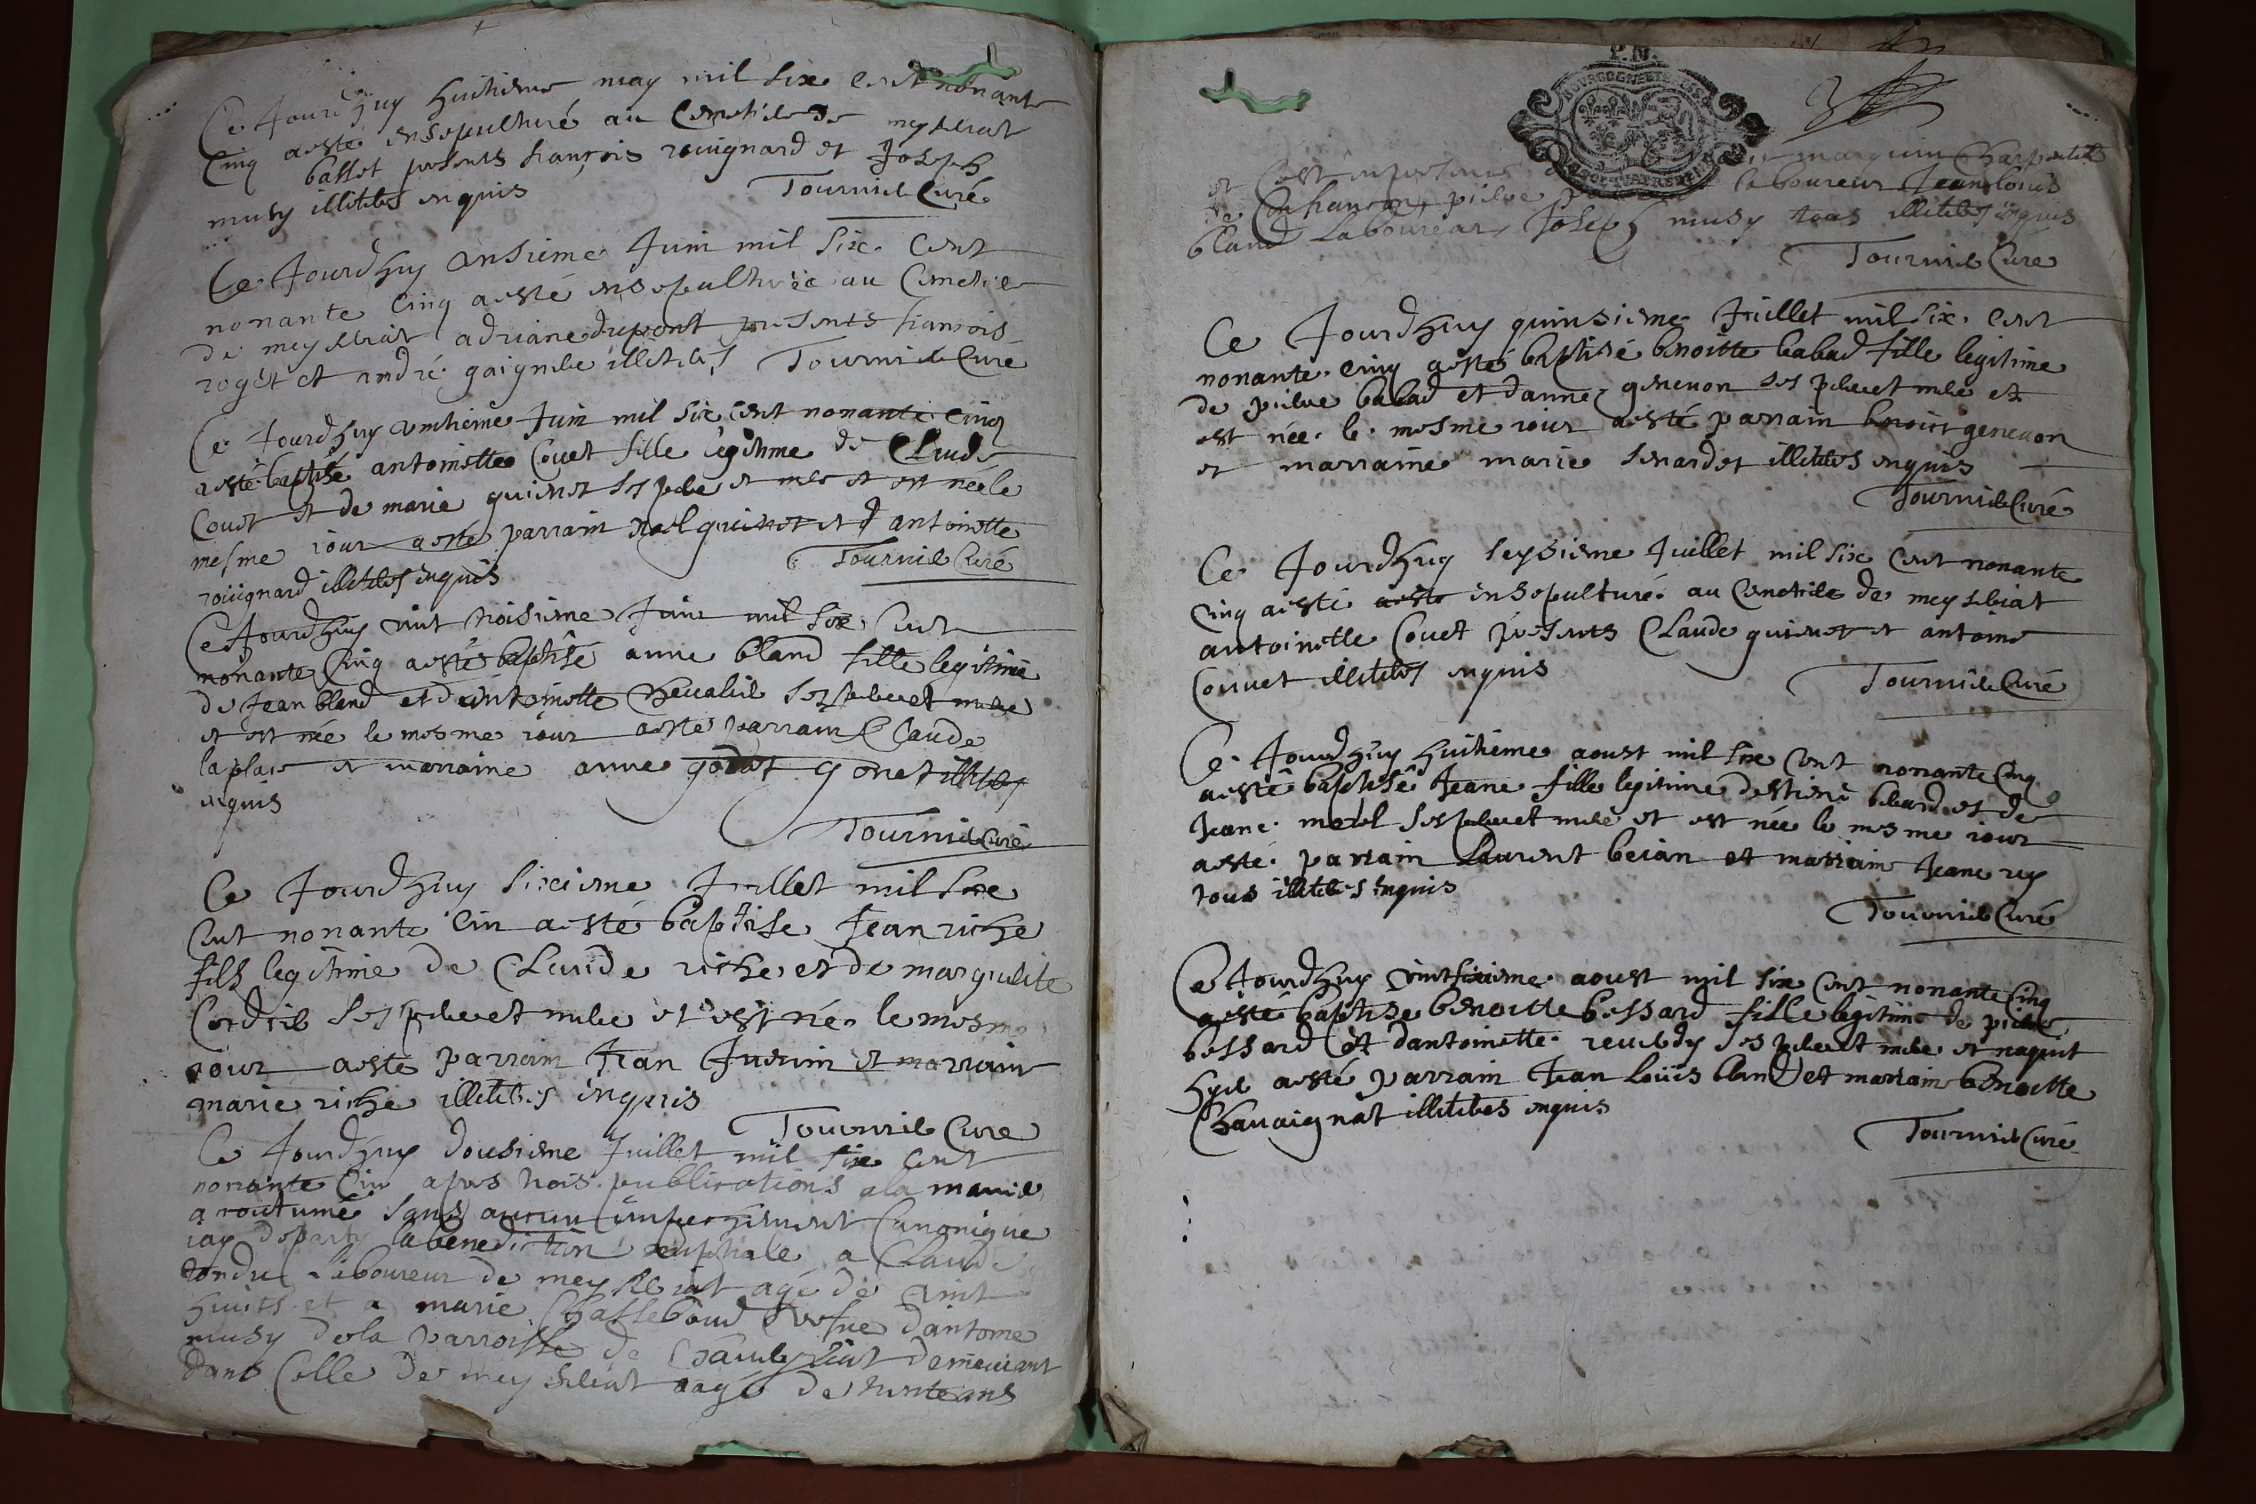 Ce Jourdhuy huitieme may mil six cent nonante
Cinq aesté ensepulturé au Cemetiere de meyseriat
ballet presents françois rouignard et Joseph
musy illiteres enquis Tournier Curé
Ce Jourdhuy onsieme Juin mil six cent
nonante cinq aesté ensepulturée au Cemetiere
de meyseriat adriane dupont presents francois
roget et André gaignere illiteres Tournier Curé
Ce Jourdhuy vintieme Juin mil six cent nonante cinq
aesté baptisé antoinette Couet fille legitime de Claude
Couet et de marie quienet ses pere et mere et est née le
mesme iour aesté parrain noel quienet et d antoinette
rouignard illiteres inquis Tournier Curé
Ce Jourdhuy vint troisieme Juin mil six cent
nonante Cinq aesté baptisé anne bland fille legitime
de Jean bland et dantoinette Cheualier ses pere et mere
et est née le mesme iour aesté parrain Claude
laplace et marraine anne godat gonet illiteres
enquis
Tournier Curé
Ce Jourdhuy sixieme Juillet mil six
cent nonante cin aesté baptise Jean riche
fils legitime de Claude riche et de marguerite
Cordier ses pere et mere et est né le mesme
iour aeste parrain Jean Juenin et marraine
marie riche illiteres inquis
Tournier Cure
Ce Jourdhuy dousieme Juillet mil six cent
nonante Cin apres trois publications a la maniere
acoutumé sans aucun empechement Canonique
iay departy la benediction nuptiale a Claude
tondu laboureur de meyseriat agé de vint
huits et a marie Chassebaud vefue dantoine
musy de la parroisse de demeurant
dans Celle de meyseriat aagé de trente ans
P. N.
BOURGOGNE ET BRESSE
et est marguin Charpentier
de pierre laboureur Jean Louis
bland Laboureur, Joseph musy tous illiteres enquis
Tournier Cure
Ce Jourdhuy quinsieme Juillet mil six cent
nonante cinq aesté baptisé benoitte babad fille legitime
de pierre babad et danne geneuon ses pere et mere et
est née le mesme iour aesté parrain benoist geneuon
et marraine marie senardet illiteres enquis
Tournier Curé
Ce Jourdhuy seysieme Juillet mil six cent nonante
cinq aesté aesté ensepulturé au Cemetiere de meyseriat
antoinette Couet presents Claude quienet et antoine
Conuet illiteres enquis Tournier Curé
Ce Jourdhuy huitieme aoust mil six cent nonante Cinq
aesté baptisé Jeane fille legitime destiene berard et de
Jeane morel ses pere et mere et est née le mesme iour
aesté parrain Laurent beian et marraine Jeane rey
tous illiteres inquis
Tournier Curé
Ce Jourdhuy vintsixieme aoust mil six cent nonante Cinq
aesté baptise benoitte bossard fille legitime de pierre
bossard et dantoinette reuerdy ses pere et mere et naquit
hyer aesté parrain Jean Louis bland et marraine benoitte
Chauaignat illiteres enquis
Tournier Curé